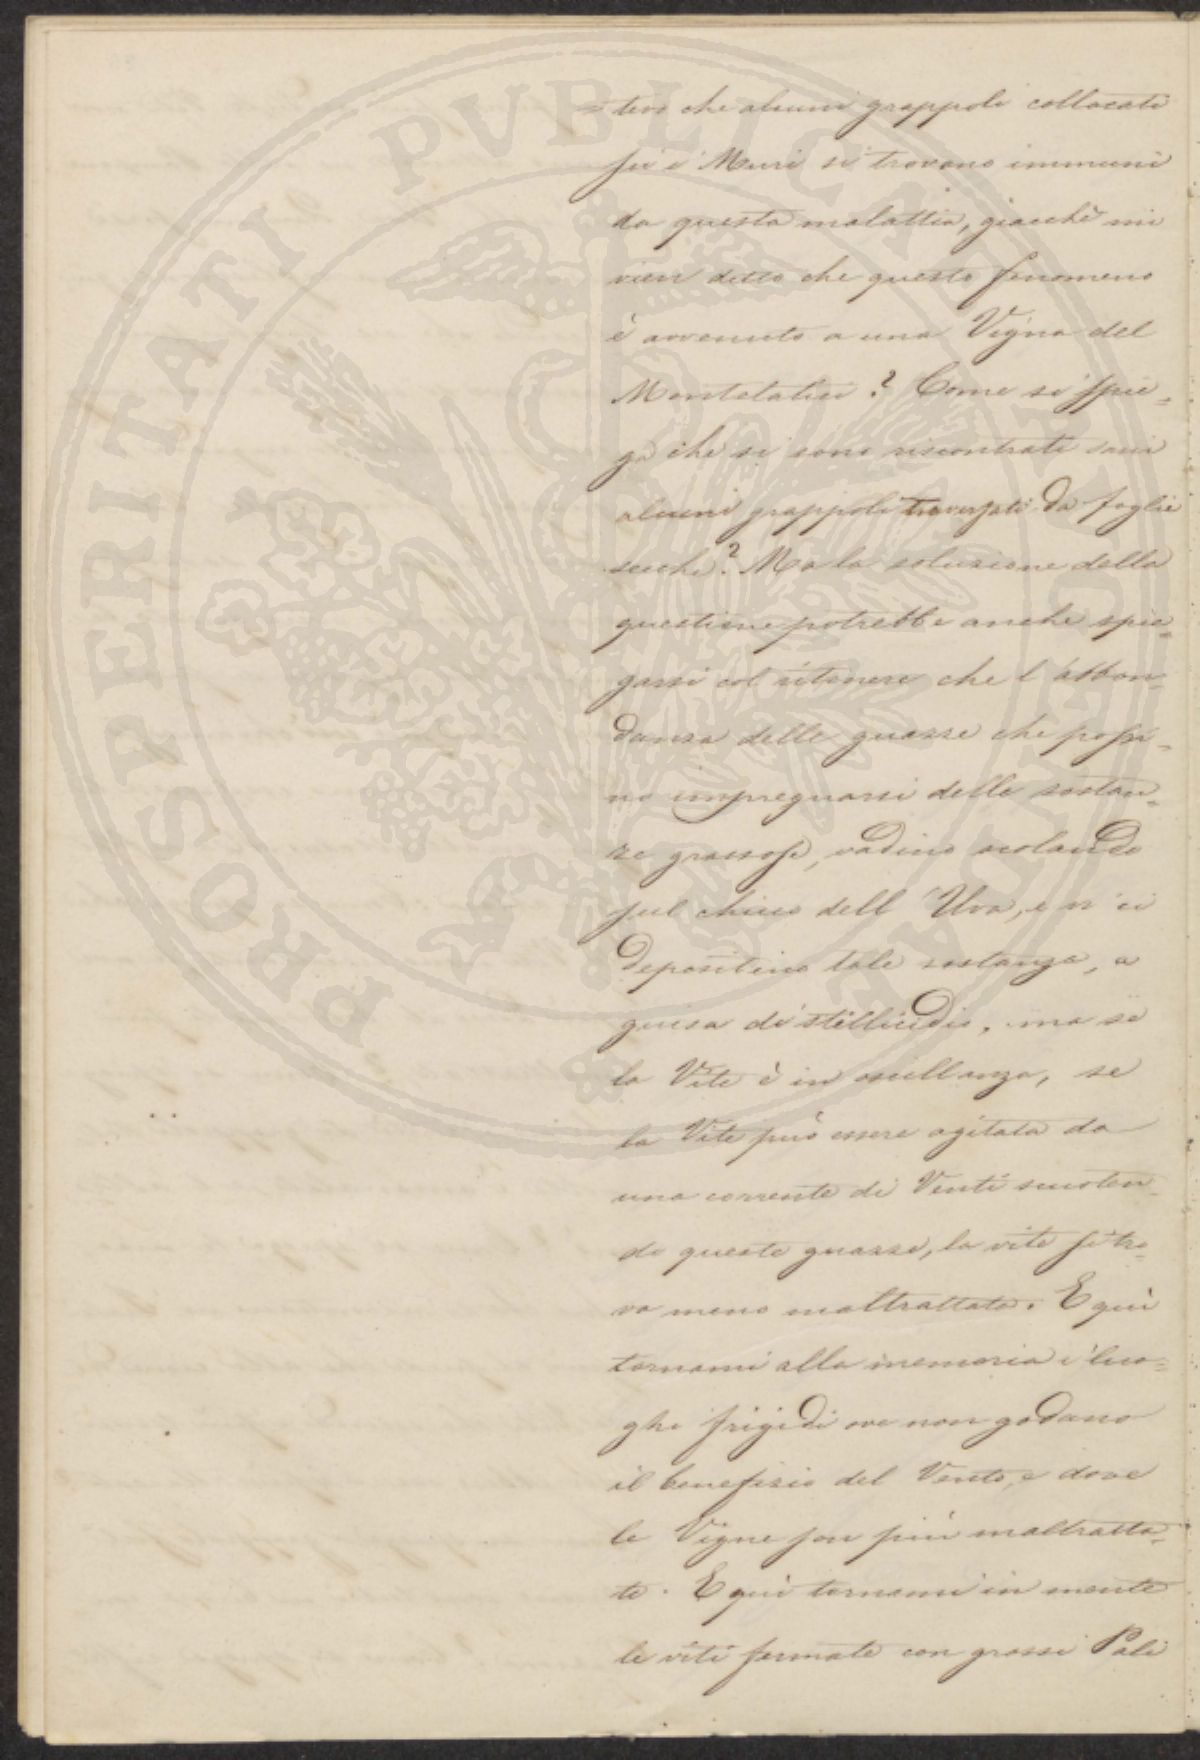 PROSPERITATI PVBLICAE AVGENDAE
=tivo che alcuni grappoli collocati
fu i Muri si trovano immuni
da questa malattia, giacchè mi
vien detto che questo fenomeno
è avvenuto a una Vigna del
Montelatici? Come si spie=
ga che si sono riscontrati sani
alcuni grappoli traversati da foglie
secche? Ma la soluzione della
questione potrebbe anche spie=
garsi col ritenere che l'abbon=
danza delle guazze che possi=
no impregnarsi delle sostan=
ze grassose, vadino scolando
sul chicco dell'Uva, e vi ci
depositino tale sostanza, a
guisa di stillicidio, ma se
la Vite è in oscillanza, se
la Vite può essere agitata da
una corrente di Venti scuoten=
do queste guazze, la vite si tro=
va meno maltrattata. E quì
tornami alla memoria i luo=
ghi frigidi ove non godano
il benefizio del Vento, e dove
le Vigne son più maltratta=
te. E quì tornami in mente
le viti fermate con grossi Pali